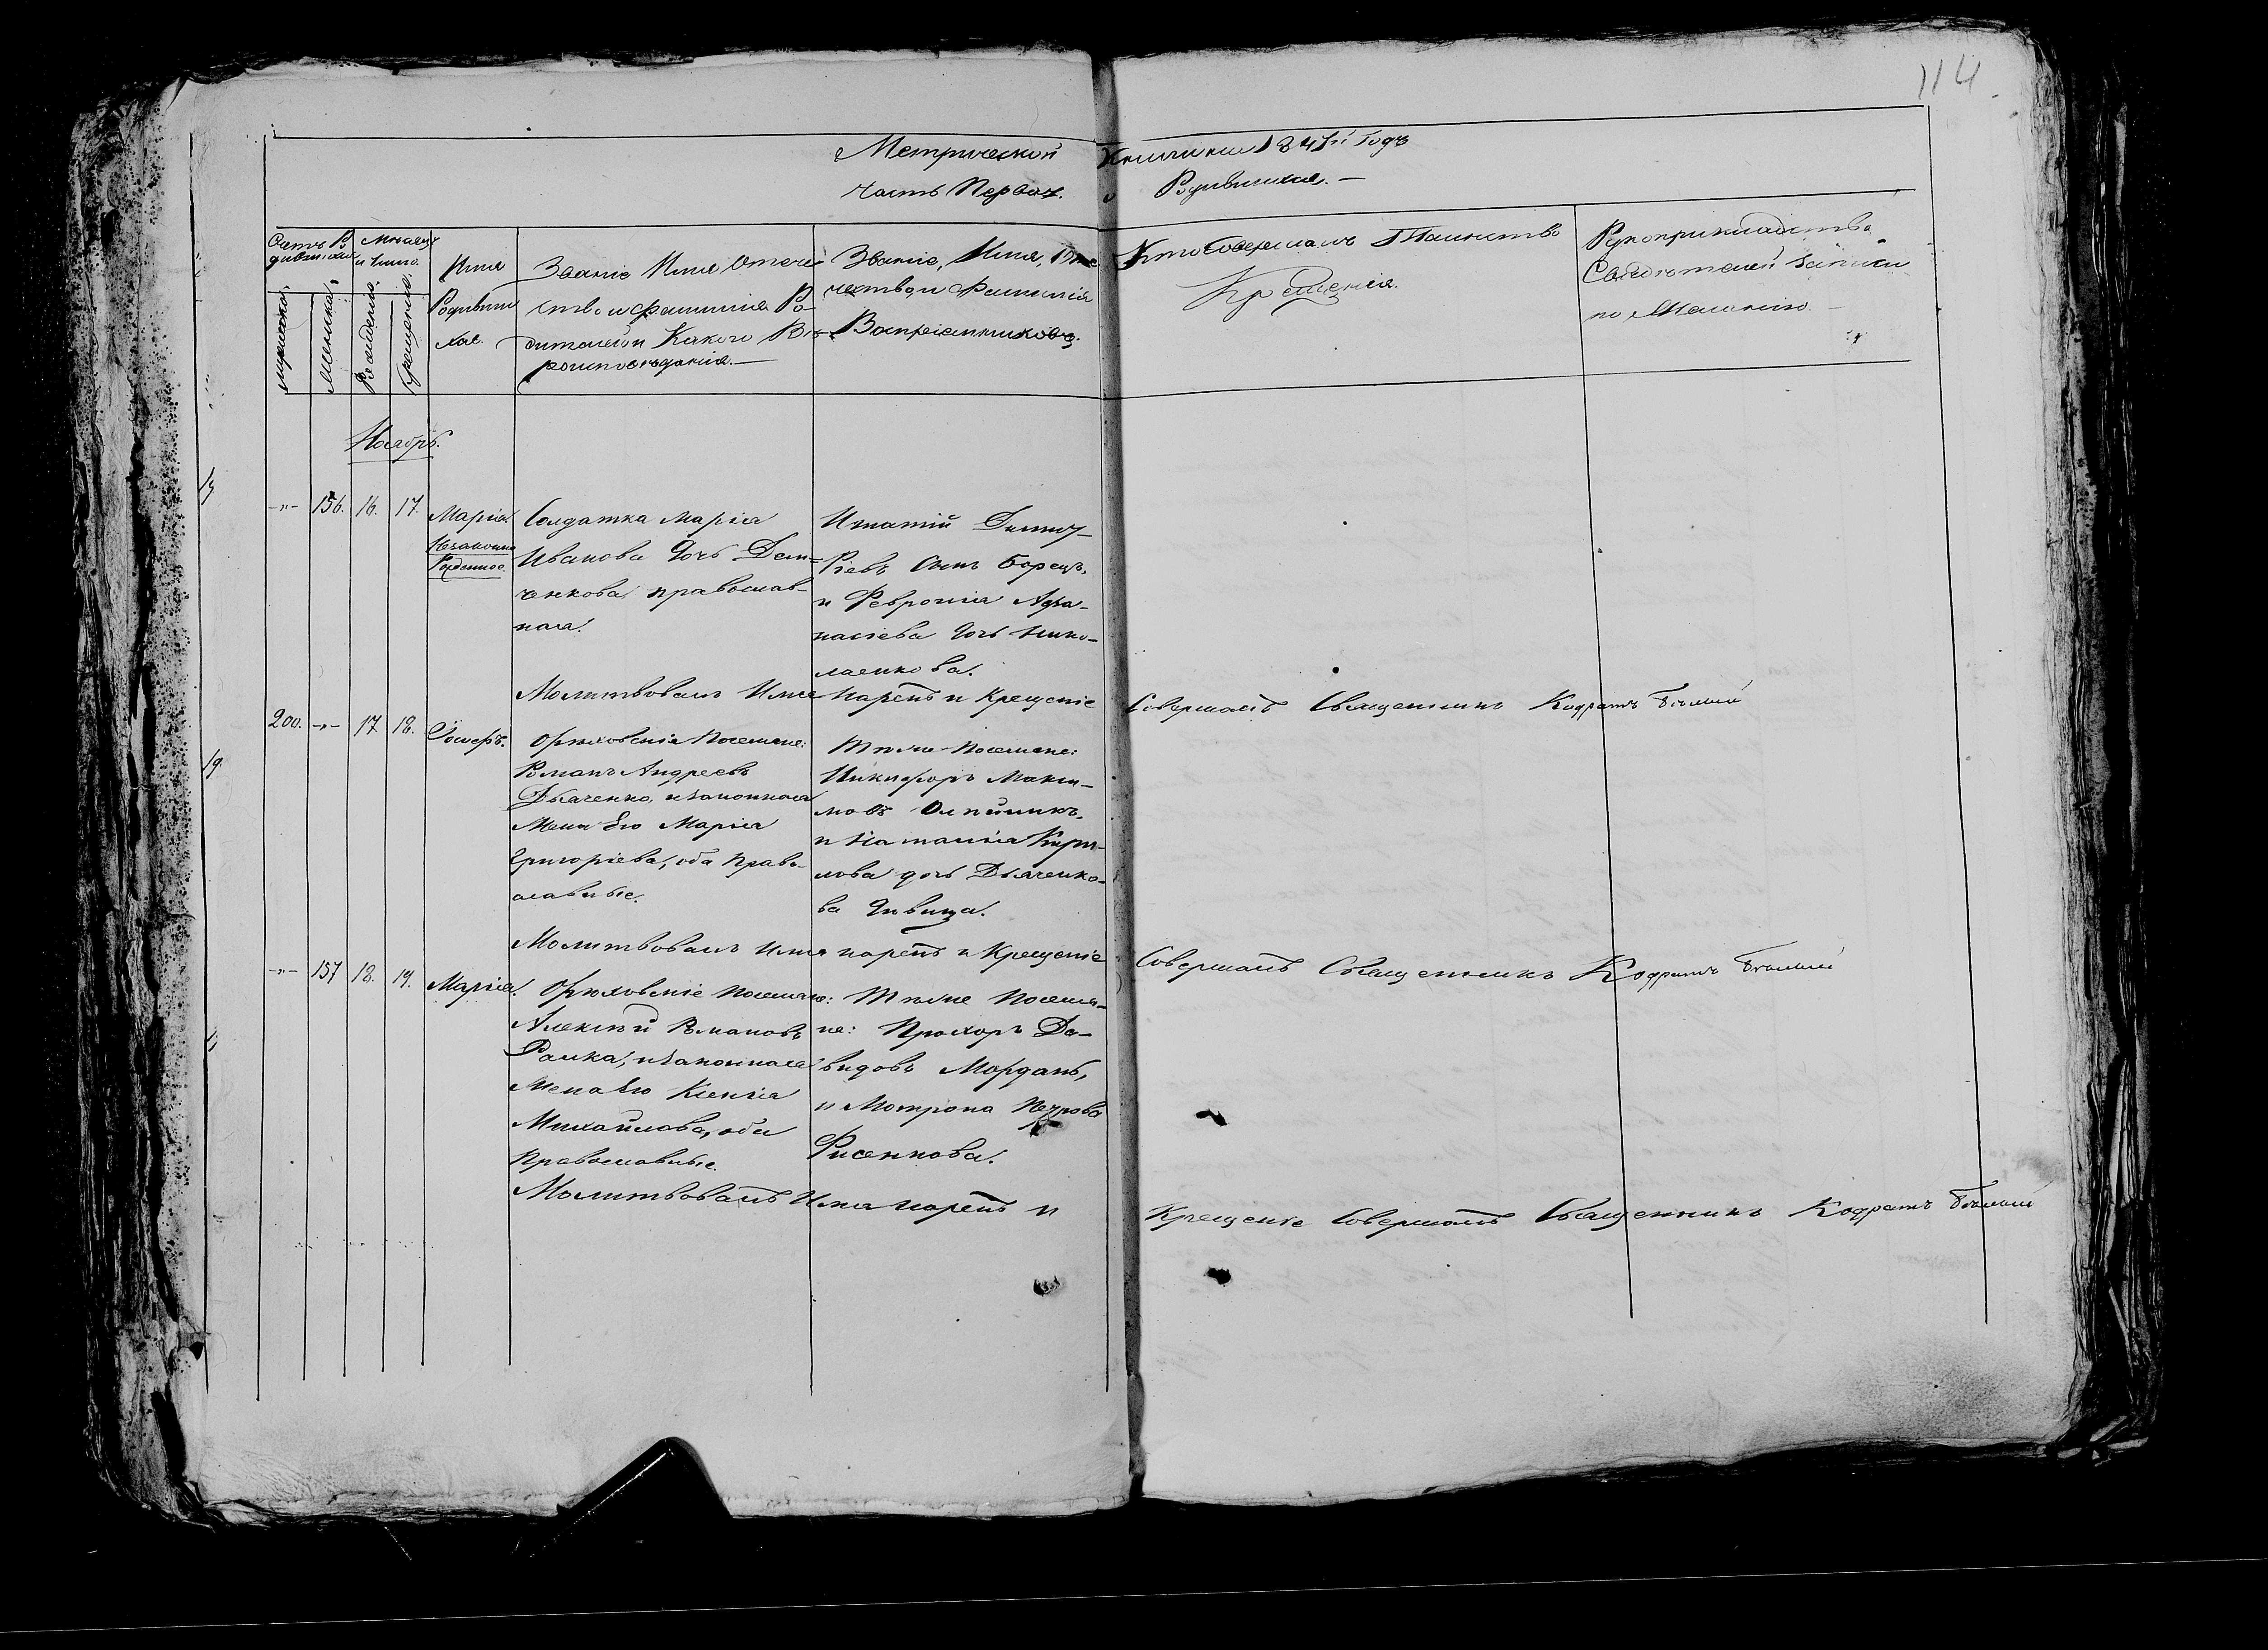 114.
Метрической Книги на 1841й Годъ
Часть Первая. о Родившихся. —
Счетъ Родившихся
Мужеска.
Женска.
Месяцъ и число.
Рожденiя.
Крещенiя.
Имя Родившихся.
Званiе Имя Отече
ство и Фамилiя Ро-
дителей и Какого Вѣ-
роисповѣданiя. —
Званiе, Имя, Оте
чество и Фамилiя
Воспрiемниковъ.
Кто Совершалъ Таинство
Крещенiя.
Рукоприкладство
Свидетелей записи
по Желанiю. —
Ноябрь.
-"- 156. 16. 17. Марiя.
Незаконно
Рожденное.
Солдатка Марiя
Иванова дочь Дем-
ченкова православ-
ная.
Игнатiй Дмит-
рiевъ сынъ Борецъ,
и Феврони́я Афа-
насiева дочь Нико-
лаенкова.
Молитвовалъ Имя Нарепъ и Крещенiе Совершалъ Священникъ Кодратъ Бѣлый
200. -"- 17 18. Iосифъ.
Орѣховскiе Поселяне:
Романъ Андреевъ
Дьяченко, и законная
Жена Его Марiя
Григорiева, оба Право-
славные.
Тѣже Поселяне:
Никифоръ Макси-
мовъ Олѣйникъ,
и Наталiя Кири-
лова дочь Дьяченко-
ва дѣвица.
Молитвовалъ имя нарепъ и Крещенiе Совершалъ Священникъ Кодратъ Бѣлый
-"- 157 18. 19. Марiя.
Орѣховскiе Поселяне:
Алексѣй Романовъ
Ралка, и законная
Жена Его Ксенiя
Михайлова, оба
Православные.
Тѣже Поселя-
не: Прохоръ Да-
видовъ Морданъ,
и Мотрона Петрова
Фисенкова.
Молитвовалъ Имя нарепъ и Крещенiе Совершалъ Священникъ Кодратъ Бѣлый